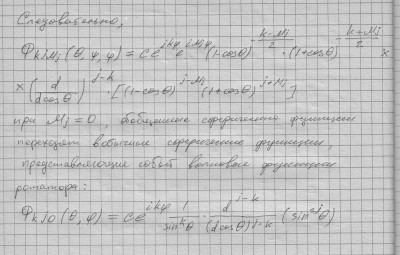 Следовательно,
Φ_{kjM_j}(θ, φ, ψ) = C e^{ikφ} e^{iM_jψ} (1-cosθ)^{-\frac{k-M_j}{2}} · (1+cosθ)^{-\frac{k+M_j}{2}} ×
× (\frac{d}{dcosθ})^{j-k} · [(1-cosθ)^{j-M_j} (1+cosθ)^{j+M_j}]
при M_j = 0, обобщенные сферические функции
переходят в обычные сферические функции,
представляющие собой волновые функции
ротатора:
Φ_{kj0}(θ, φ) = C e^{ikφ} \frac{1}{sin^kθ} · \frac{d^{j-k}}{(dcosθ)^{j-k}} (sin^{2j}θ)